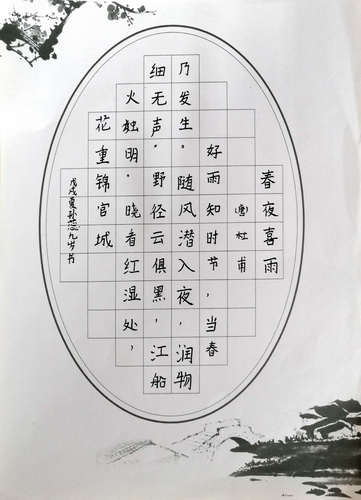 春夜喜雨
唐杜甫
好雨知时节，当春
乃发生。随风潜入夜，润物
细无声。野径云俱黑，江船
火独明。晓看红湿处，
花重锦官城
戊戌夏孙蕊九岁书